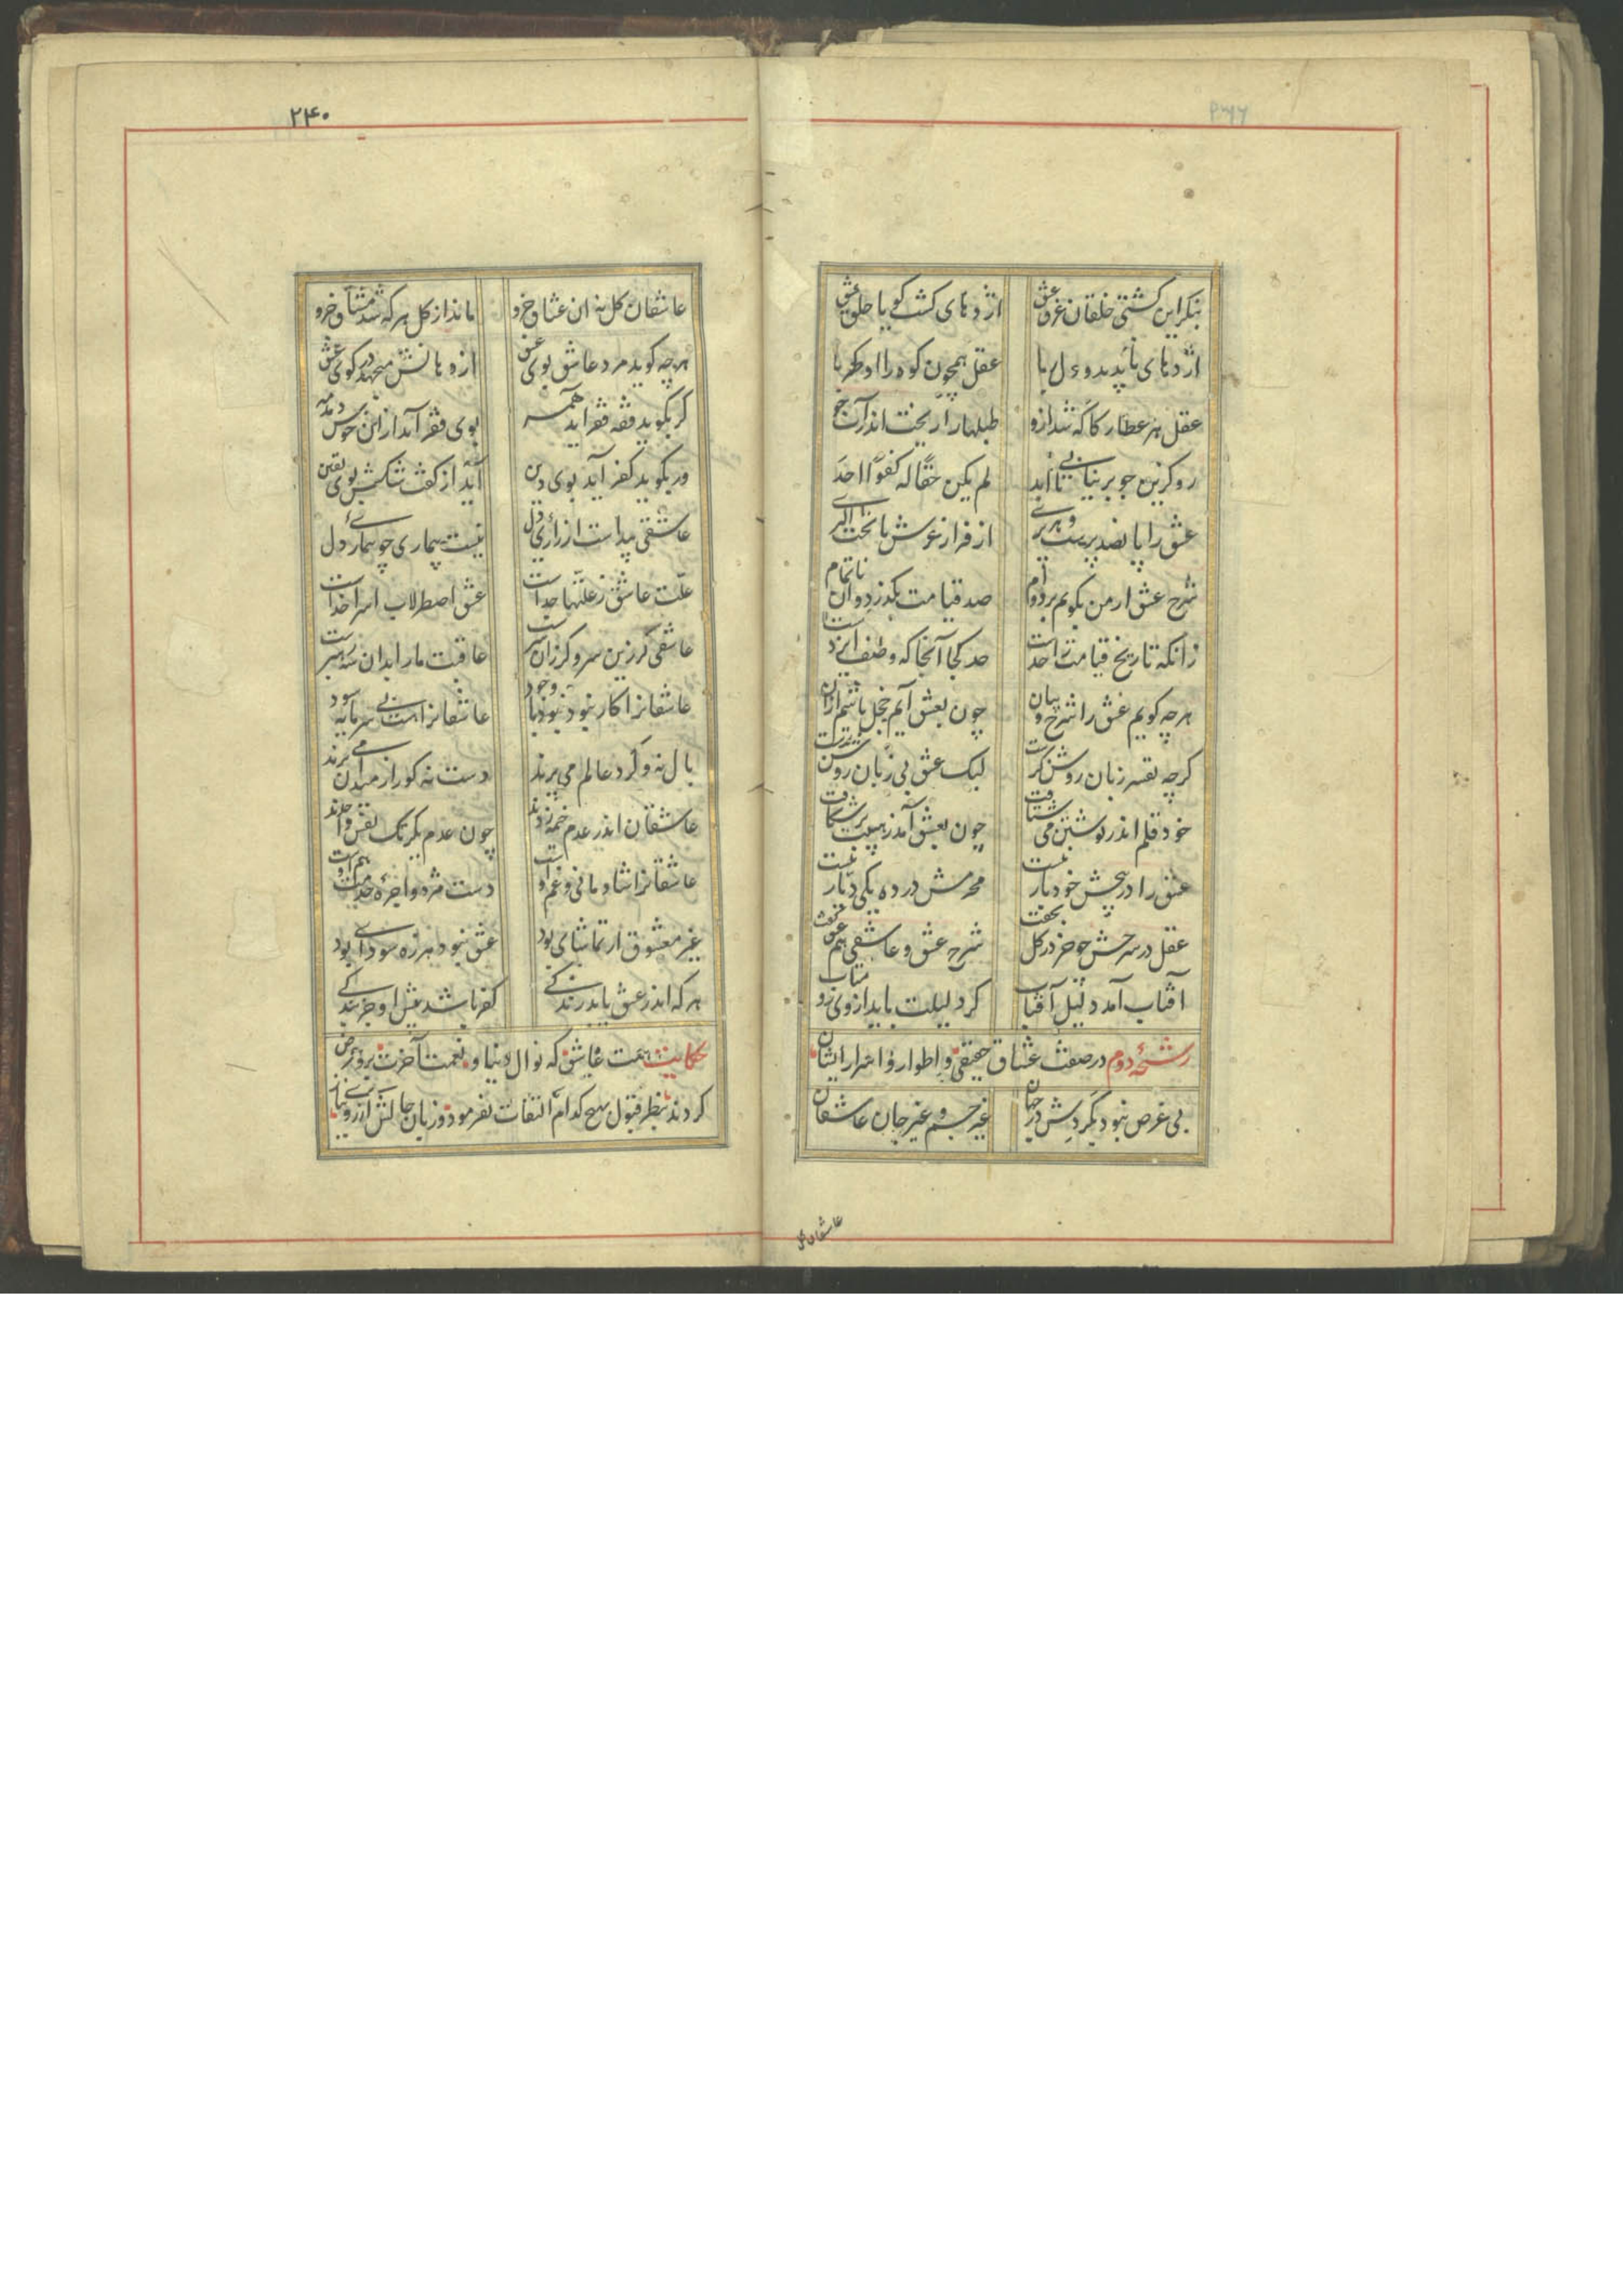 بنگر این کشتی خلقان غرق عشق
اژدهای گشت گویا حلق عشق
اژدهای ناپدید دل ربا
عقل همچون کوه را او کهربا
عقل هر عطار کاگه شد ازو
طبلها را ریخت اندر آب جو
رو کزین جو برنیایی تا ابد
لم یکن حقا له کفوا احد
عشق را پانصد پرست و هر پری
از فراز عرش تا تحت الثری
شرح عشق ار من بگویم بر دوام
صد قیامت بگذرد وان ناتمام
زانکه تاریخ قیامت را حد است
حد کجا آنجا که وصف ایزد است
هر چه گویم عشق را شرح و بیان
چون بعشق آیم خجل باشم ازان
گرچه تفسیر زبان روشن گرست
لیک عشق بی زبان روشن ترست
خود قلم اندر نوشتن می شتافت
چون بعشق آمد ز هیبت بر شکافت
عشق را در پیچش خود یار نیست
محرمش در ده یکی دیار نیست
عقل در شرحش چو خر در گل بخفت
شرح عشق و عاشقی هم عشق گفت
آفتاب آمد دلیل آفتاب
گر دلیلت باید از وی رو متاب
رشحهٔ دوم در صفت عشاق حقیقی و اطوار و اسرار ایشان
بی غرض نبود بگردش در جهان
غیر جسم و غیر جان عاشقان
عاشقان کل
۲۴۰
عاشقان کل نه ان عشاق جزو
ماند از کل هر که شد مشتاق جزو
هر چه گوید مرد عاشق بوی عشق
از دهانش میجهد در کوی عشق
گر بگوید فقه فقر آید همه
بوی فقر آید ازان خوش دمدمه
ور بگوید کفر آید بوی دین
آید از گفت شکش بوی یقین
عاشقی پیداست از زاری دل
نیست بیماری چو بیماری دل
علت عاشق ز علتها جداست
عشق اصطرلاب اسرار خداست
عاشقی گر زین سر و گر زان سرست
عاقبت ما را بدان شه رهبرست
عاشقانرا کار نبود با وجود
عاشقانرا هست بی سرمایه سود
بال نه و گرد عالم می پرند
دست نه گو از میدان می برند
عاشقان اندر عدم خیمه زدند
چون عدم یکرنگ و نفس واحدند
عاشقانرا شادمانی و غم اوست
دست مزد و اجرهٔ خدمت هم اوست
غیر معشوق ار تماشای بود
عشق نبود هرزه سودای بود
هر که اندر عشق یابد زندگی
کفر باشد پیش او جز بندگی
حکایت همت عاشق که نوال دنیا و نعمت آخرت برو عرض
کردند بنظر قبول بهیچ کدام التفات نفرمود و زبان حالش از روی بی نیازی